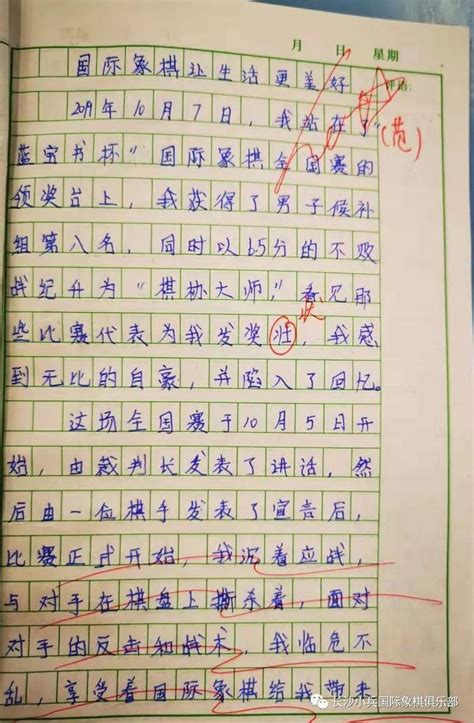 月 日 星期
国际象棋让生活更美好
评语:
2019年10月7日，我站在了“
(范)
蓝宝书杯”国际象棋全国赛的
领奖台上，我获得了男子候补
组第八名，同时以6.5分的不败
战纪升为“棋协大师”，看见那
状
些比赛代表为我发奖壮，我感
到无比的自豪，并陷入了回忆。
这场全国赛于10月5日开
始，由裁判长发表了讲话，然
后由一位棋手发表了宣言后，
比赛正式开始，我沉着应战，
与对手在棋盘上撕杀着，面对
对手的反击和战术，我临危不
乱，享受着国际象棋给我带来
长沙小兵国际象棋俱乐部